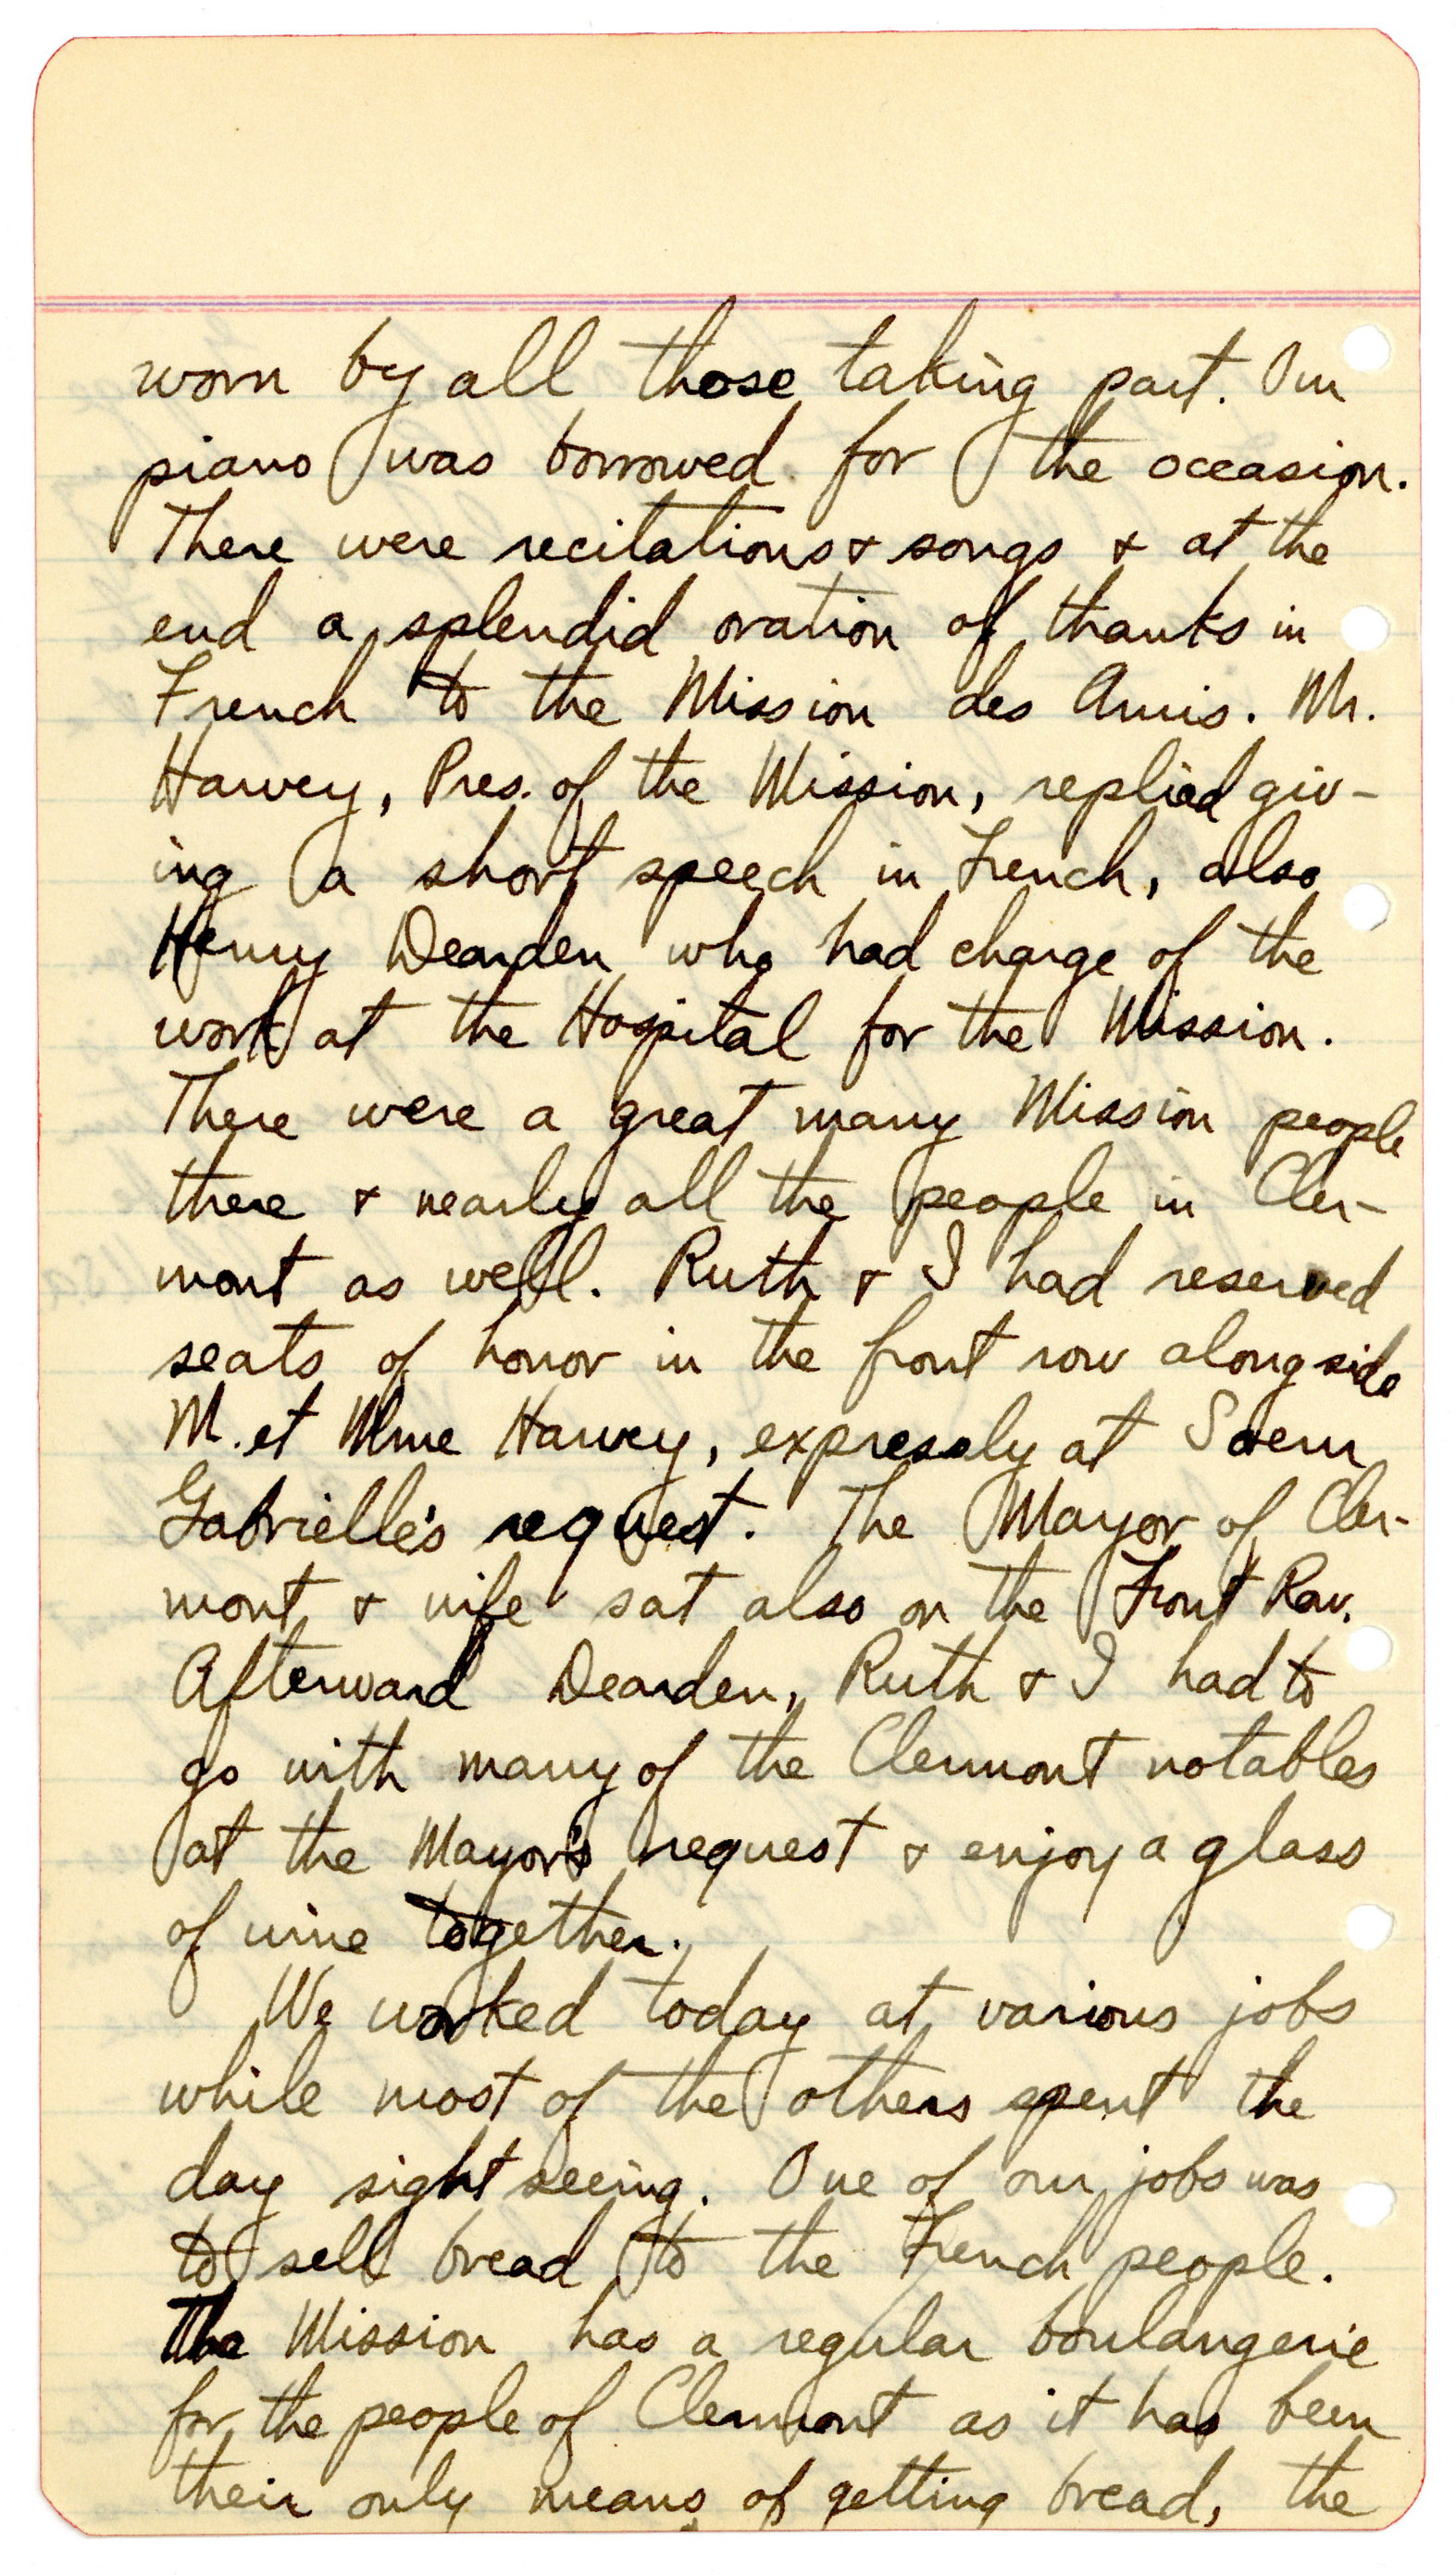 worn by all those taking part. Our
piano was borrowed for the occasion.
There were recitations & songs & at the
end a splendid oration of thanks in
French to the Mission des Amis. Mr.
Harvey, Pres. of the Mission, replied giv-
ing a short speech in French, also
Henry Dearden who had charge of the
work at the Hospital for the Mission.
There were a great many Mission people
there & nearly all the people in Cler-
mont as well. Ruth & I had reserved
seats of honor in the front row alongside
M. et Mme Harvey, expressly at Soeur
Gabrielle's request. The Mayor of Cler-
mont & wife sat also on the Front Row.
Afterward Dearden, Ruth & I had to
go with many of the Clermont notables
at the Mayor's request & enjoy a glass
of wine together.
We worked today at various jobs
while most of the others spent the
day sight seeing. One of our jobs was
to sell bread to the French people.
The Mission has a regular boulangerie
for the people of Clermont as it has been
their only means of getting bread, the